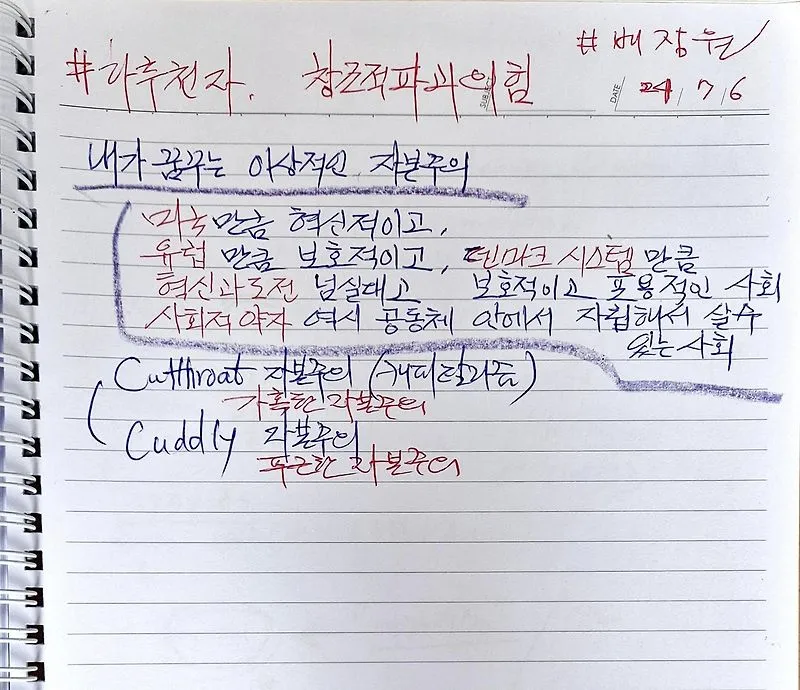 # 배장원
#하춘천자. 창조적파괴의힘
SUBJECT
DATE 24 / 7 / 6
내가 꿈꾸는 이상적인 자본주의
미국 만큼 혁신적이고,
유럽 만큼 보호적이고, 덴마크 시스템 만큼
혁신과도전 넘실대고 보호적이고 포용적인 사회
사회적약자 역시 공동체 안에서 자립해서 살수
있는사회
Cutthroat 자본주의 (캐피탈리즘)
가혹한 자본주의
Cuddly 자본주의
푸근한 자본주의